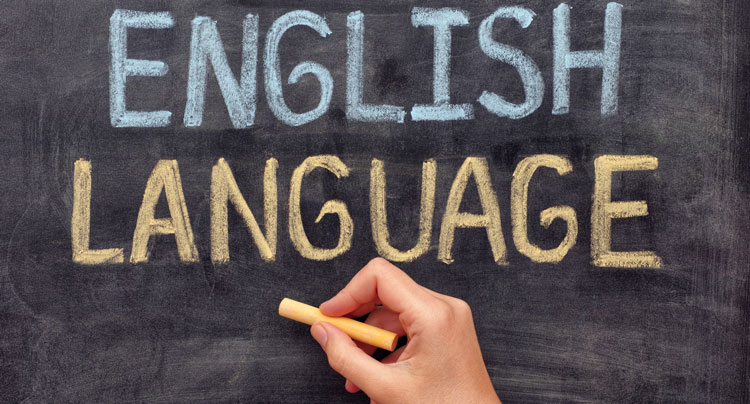 ENGLISH
LANGUAGE